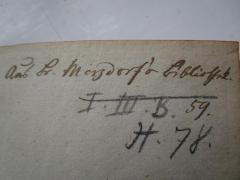 Aus Dr. Merzdorf's Bibliothek.
I III. B. 59.
H. 78.